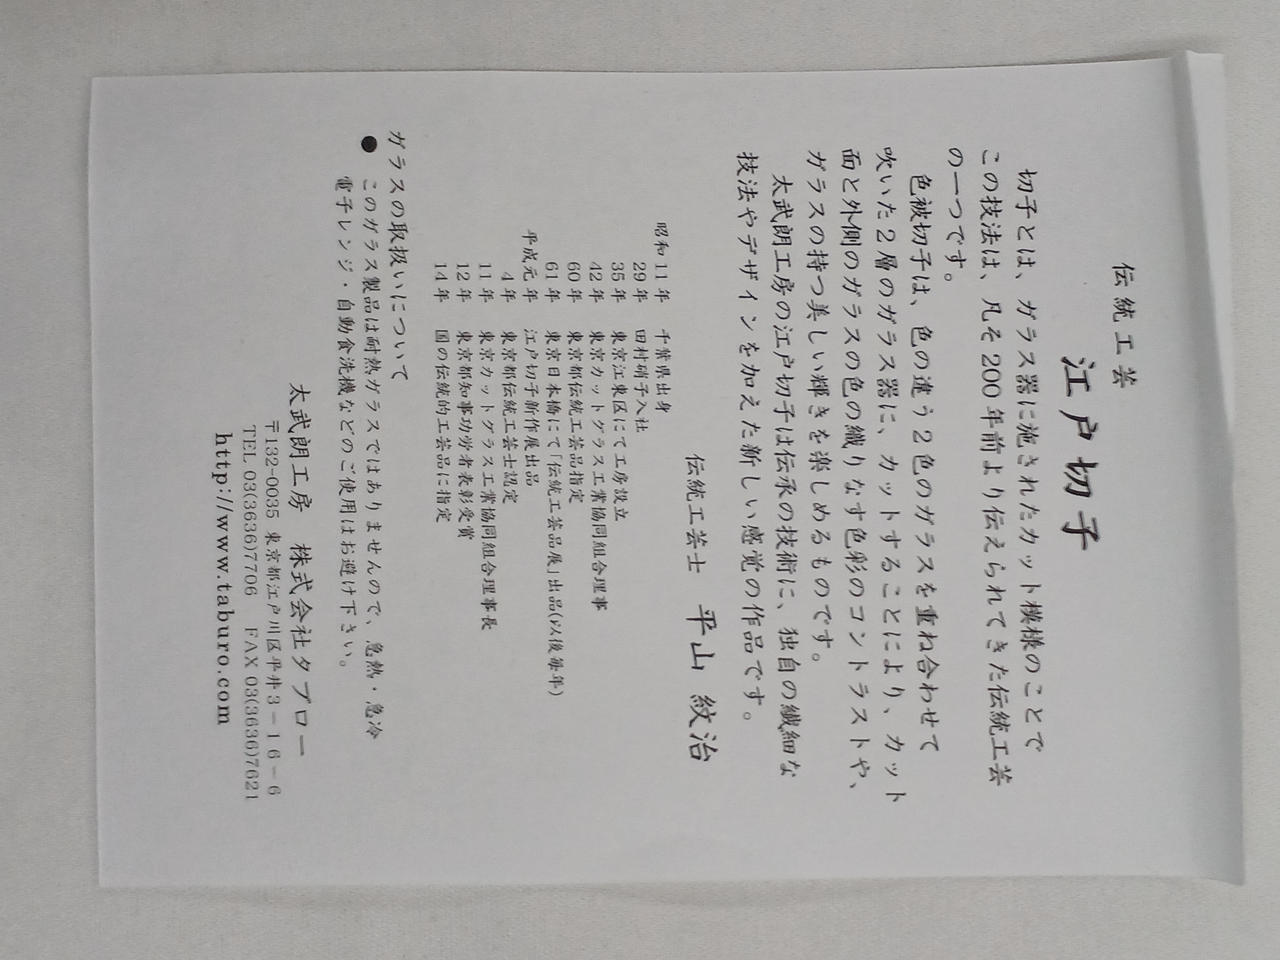 伝統工芸
江戸切子
切子とは、ガラス器に施されたカット模様のことで
この技法は、凡そ200年前より伝えられてきた伝統工芸
の一つです。
色被切子は、色の違う2色のガラスを重ね合わせて
吹いた2層のガラス器に、カットすることにより、カット
面と外側のガラスの色の織りなす色彩のコントラストや、
ガラスの持つ美しい輝きを楽しめるものです。
太武朗工房の江戸切子は伝承の技術に、独自の繊細な
技法やデザインを加えた新しい感覚の作品です。
伝統工芸士 平山 紋治
昭和11年 千葉県出身
29年 田村硝子入社
35年 東京江東区にて工房設立
42年 東京カットグラス工業協同組合理事
60年 東京都伝統工芸品指定
61年 東京日本橋にて「伝統工芸品展」出品(以後毎年)
平成元年 江戸切子新作展出品
4年 東京都伝統工芸士認定
11年 東京カットグラス工業協同組合理事長
12年 東京都知事功労者表彰受賞
14年 国の伝統的工芸品に指定
ガラスの取扱いについて
● このガラス製品は耐熱ガラスではありませんので、急熱・急冷
電子レンジ・自動食洗機などのご使用はお避け下さい。
太武朗工房 株式会社タブロー
〒132-0035 東京都江戸川区平井3-16-6
TEL 03(3636)7706 FAX 03(3636)7621
http://www.taburo.com